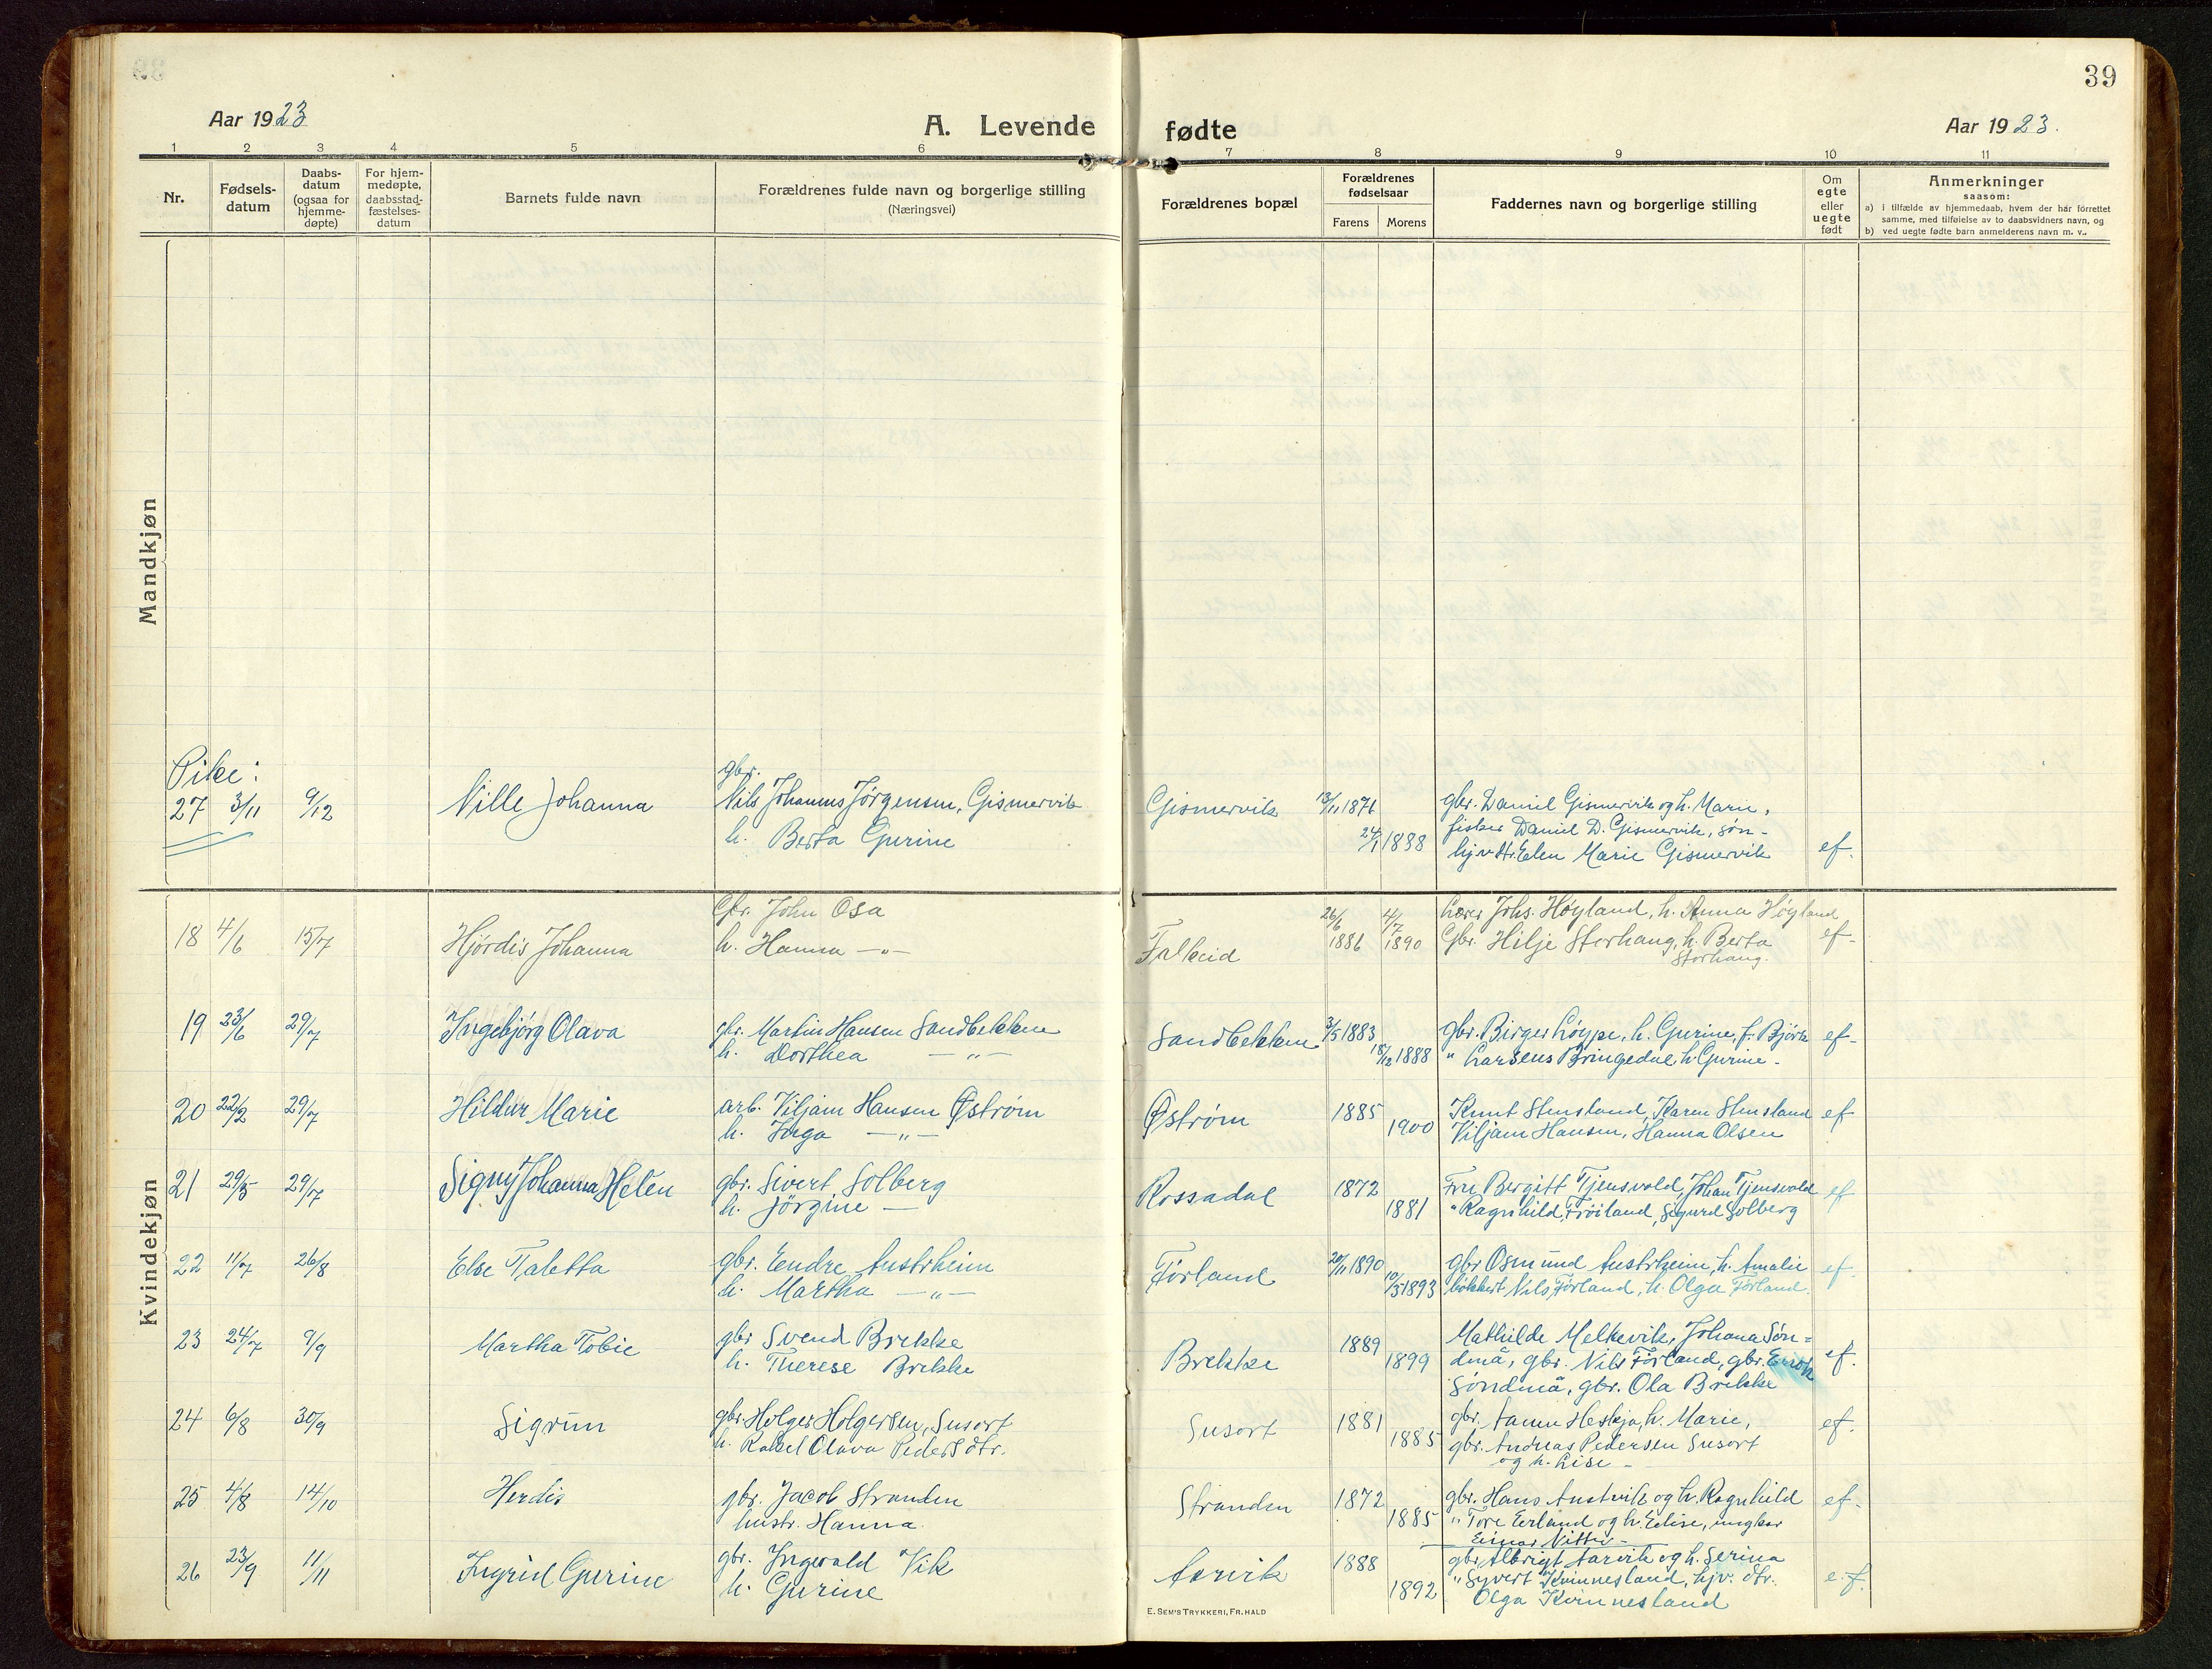 39
Aar 1923
A. Levende fødte
Aar 1923.
1 2 3 4 5 6 7 8 9 10 11
Nr.
Fødsels-
datum
Daabs-
datum
(ogsaa for
hjemme-
døpte)
For hjem-
medøpte,
daabsstad-
fæstelses-
datum
Barnets fulde navn
Forældrenes fulde navn og borgerlige stilling
(Næringsvei)
Forældrenes bopæl
Forældrenes
fødselsaar
Farens Morens
Faddernes navn og borgerlige stilling
Om
egte
eller
uegte
født
Anmerkninger
saasom:
a) i tilfælde av hjemmedaab, hvem der har forrettet
samme, med tilføielse av to daabsvidners navn, og
b) ved uegte fødte barn anmelderens navn m. v..
Mandkjøn
Pike:
27 3/11 9/12 Nille Johanna
gbr.
Nils Johannes Jörgensen, Gismervik
h. Berta Gurine
Gismervik 13/11 1876
24/1 1888
gbr. Daniel Gismervik og h. Marie,
fisker Daniel D. Gismervik, søn-
hjv. dtr. Elen Marie Gismervik ef.
Kvindekjøn
18 4/6 15/7 Hjördis Johanna
Gbr. John Osa
h. Hanna -"-
Falkeid 26/6 1886 4/7 1890
Lærer Johs. Høyland, h. Anna Høyland
Gbr. Hilje Storhaug, h. Berta
Storhaug. ef-
19 23/6 29/7 Ingebjörg Olava
gbr. Martin Hansen Sandbekken
h. Dorthea -"-
Sandbekken 3/5 1883
18/12 1888
gbr. Birger Løype, h. Gurine, f. Björk
" Larsens Bringedal, h. Gurine - ef-
20 22/2 29/7 Hildur Marie
arb. Viljam Hansen Østrøm
h. Inga -"-
Østrøm 1885
1900
Knut Stensland, Karen Stensland
Viljam Hansen, Hanna Olsen ef
21 29/5 29/7 Signy Johanna Helen
gbr. Sivert Solberg
h. Jörgine -
Rossadal 1872
1881
Fru Bergitt Tjensvold, Johan Tjensvold
" Ragnhild Fröiland, Sigurd Solberg ef
22 11/7 26/8 Else Taletta
gbr. Endre Austrheim
h. Martha -"-
Förland 20/11 1890
10/5 1893
gbr Osmund Austrheim, h. Amalie
Nils Förland, h. Olga Förland. ef.
23 24/7 9/9 Martha Tobie
gbr Svend Brekke
h. Therese Brekke
Brekke 1889
1899
Mathilde Melkevik, Johana Søn=
dmå, gbr. Nils Förland, gbr. Enok
Søndmå, gbr. Ola Brekke ef.
24 6/8 30/9 Sigrun
gbr. Holger Holgersen, Susort
h. Rakel Olava Pedersdtr.
Susort 1881
1885
gbr. Aanen Heskja, h. Marie,
gbr. Andreas Pedersen Susort
og h. Lise - ef.
25 4/8 14/10 Herdis
gbr. Jacob Stranden
hustr. Hanna.
Stranden 1872
1885
gbr. Hans Austvik og h. Ragnhild
" Tore Erland og h. Elise, ungkar
Einar ef-
26 23/9 11/11 Ingrid Gurine
gbr. Ingvald Vik
h. Gurine
Aarvik 1888
1892
gbr. Albrigt Aarvik og h. Serina
" Syvert Kvinnesland, hjv. dtr.
Olga Kvinnesland ef.
E. SEM'S TRYKKERI, FR.HALD